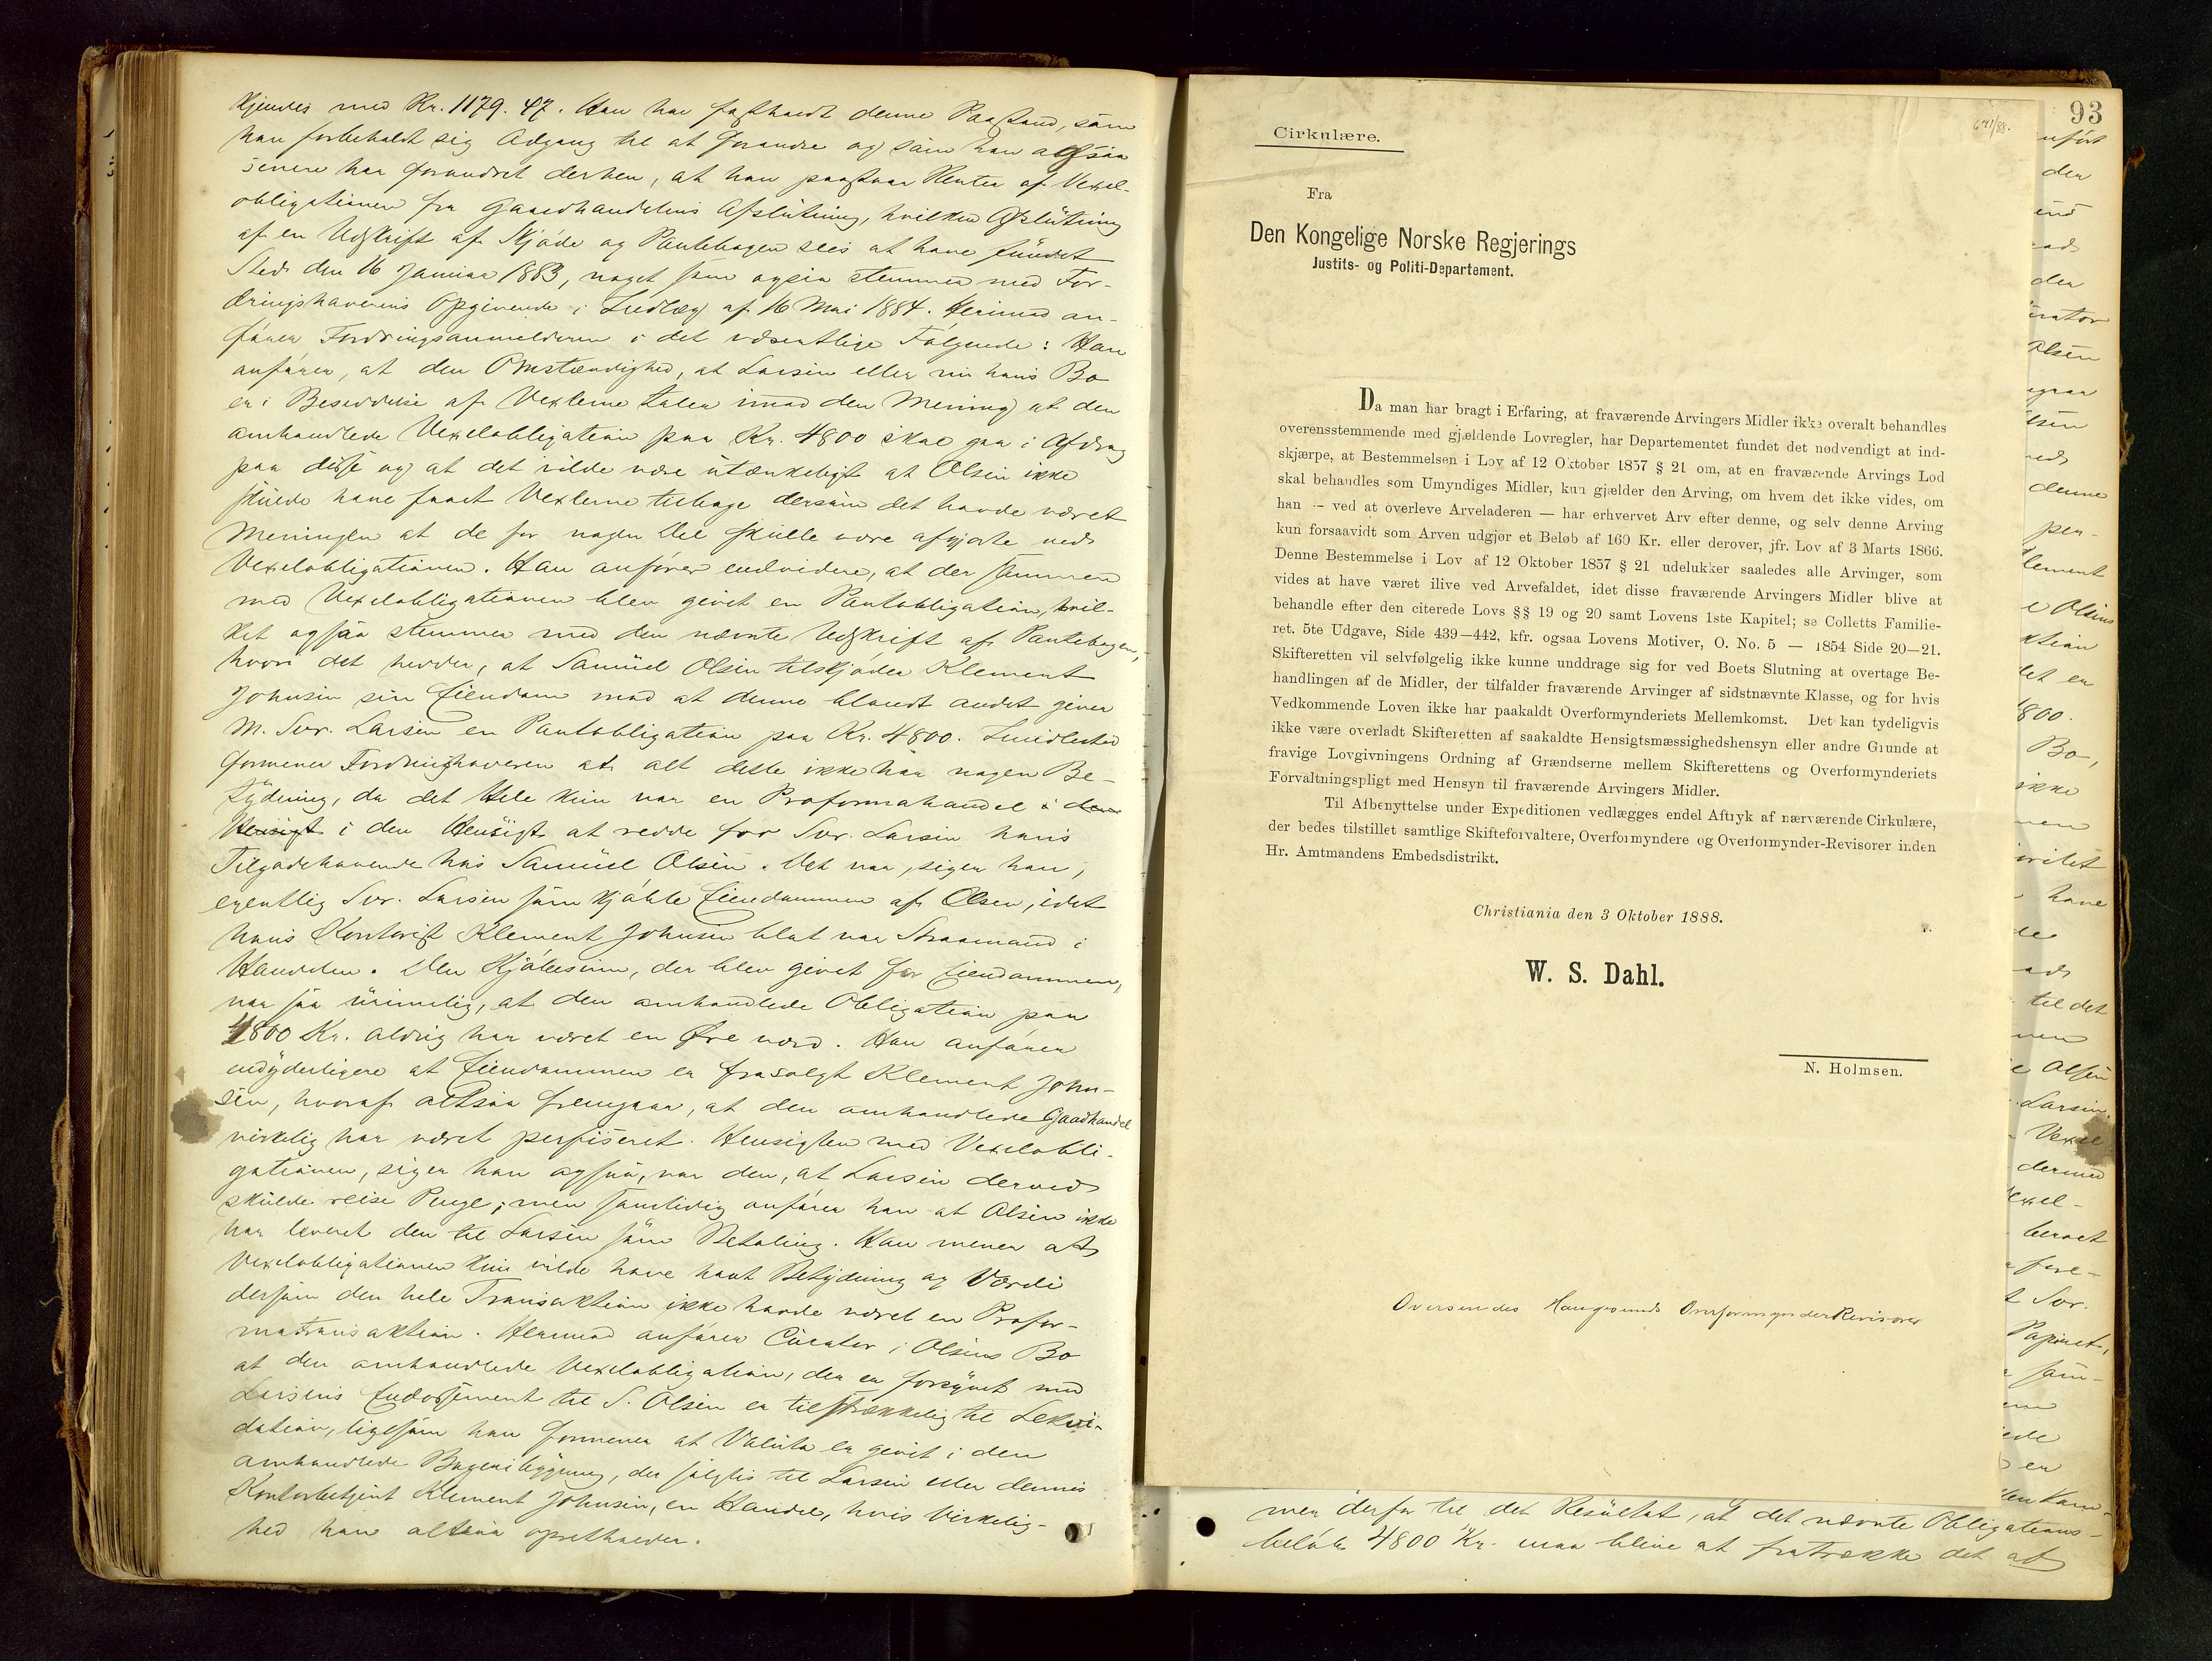 kjendes med Kr. 1179.47. Han har fastholdt denne Paastand, som
han forbeholdt sig Adgang til at forandre og som han ogsaa
senere har forandret derhen, at han paastaar Renter af Vexel-
obligationen fra Gaardhandelens Afslutning, hvilken Afslutning
af en Udskrift af Skjøde og Pantebogen sees at have fundet
Sted den 16 Januar 1883, noget som ogsaa stemmer med For-
dringshaverens Opgivende i Indlæg af 16 Mai 1884. Herimod an-
fører Fordringsanmelderen i det væsentlige Følgende: Han
anfører, at den Omstændighed, at Larsen eller nu hans Bo
er i Besiddelse af Vexlerne taler imod den Mening at den
omhandlede Vexelobligation paa Kr. 4800 skal gaa i Afdrag
paa disse og at det vilde være utænkeligt at Olsen ikke
skulde have faaet Vexlerne tilbage dersom det havde været
Meningen at de for nogen Del skulde være afgjorte ved
Vexelobligationen. Han anfører endvidere, at der sammen
med Vexelobligationen blev givet en Pantobligation, hvil-
ket ogsaa stemmer med den nævnte Udskrift af Pantebogen,
hvori det hedder, at Samuel Olsen tilskjøder Klement
Johnsen sin Eiendom mod at denne blandt andet giver
M. Svr. Larsen en Pantobligation paa Kr. 4800. Imidlertid
formener Fordringshaveren at alt dette ikke har nogen Be-
tydning, da det Hele kun var en Proformahandel i den
Hensigt i den Hensigt at redde for Svr. Larsen hans
Tilgodehavende hos Samuel Olsen. Det var, siger han,
egentlig Svr. Larsen som kjøbte Eiendommen af Olsen, idet
hans Kontorist Klement Johnsen blot var Straamand i
Handelen. Den Kjøbesum, der blev givet for Eiendommen,
var saa urimelig, at den omhandlede Obligation paa
4800 Kr. aldrig har været en Øre værd. Han anfører
endyderligere at Eiendommen er frasolgt Klement John-
sen, hvoraf altsaa fremgaar, at den omhandlede Gaardhandel
virkelig har været perfiseret. Hensigten med Vexelobli-
gationen, siger han ogsaa, var den, at Larsen derved
skulde reise Penge; men samtidig anfører han at Olsen ikke
har leveret den til Larsen som Betaling. Han mener at
Vexelobligationen kun vilde have havt Betydning og Værdi
dersom den hele Transaktion ikke havde været en Profor-
matransaktion. Hermod anfører Curator i Olsens Bo
at den omhandlede Vexelobligation, der er forsynet med
Larsens Endossement til S. Olsen er tilstrækkelig til Lekvi-
dation, ligesom han formener at Valuta er givet i den
omhandlede Bageribygning, der solgtes til Larsen eller dennes
Kontorbetjent Klement Johnsen, en Handel, hvis Virkelig-
hed han altsaa opretholder.
93
641/88.
Cirkulære.
Fra
Den Kongelige Norske Regjerings
Justits- og Politi-Departement.
Da man har bragt i Erfaring, at fraværende Arvingers Midler ikke overalt behandles
overensstemmende med gjældende Lovregler, har Departementet fundet det nødvendigt at ind-
skjærpe, at Bestemmelsen i Lov af 12 Oktober 1857 § 21 om, at en fraværende Arvings Lod
skal behandles som Umyndiges Midler, kun gjælder den Arving, om hvem det ikke vides, om
han — ved at overleve Arveladeren — har erhvervet Arv efter denne, og selv denne Arving
kun forsaavidt som Arven udgjør et Beløb af 160 Kr. eller derover, jfr. Lov af 3 Marts 1866.
Denne Bestemmelse i Lov af 12 Oktober 1857 § 21 udelukker saaledes alle Arvinger, som
vides at have været ilive ved Arvefaldet, idet disse fraværende Arvingers Midler blive at
behandle efter den citerede Lovs §§ 19 og 20 samt Lovens 1ste Kapitel; se Colletts Familie-
ret. 5te Udgave, Side 439—442, kfr. ogsaa Lovens Motiver, O. No. 5 — 1854 Side 20—21.
Skifteretten vil selvfølgelig ikke kunne unddrage sig for ved Boets Slutning at overtage Be-
handlingen af de Midler, der tilfalder fraværende Arvinger af sidstnævnte Klasse, og for hvis
Vedkommende Loven ikke har paakaldt Overformynderiets Mellemkomst. Det kan tydeligvis
ikke være overladt Skifteretten af saakaldte Hensigtsmæssighedshensyn eller andre Grunde at
fravige Lovgivningens Ordning af Grændserne mellem Skifterettens og Overformynderiets
Forvaltningspligt med Hensyn til fraværende Arvingers Midler.
Til Afbenyttelse under Expeditionen vedlægges endel Aftryk af nærværende Cirkulære,
der bedes tilstillet samtlige Skifteforvaltere, Overformyndere og Overformynder-Revisorer inden
Hr. Amtmandens Embedsdistrikt.
Christiania den 3 Oktober 1888.
W. S. Dahl.
N. Holmsen.
Oversendes Haugesunds OverformynderRevisorer
men derfor til det Resultat, at det nævnte Obligations-
beløb 4800 Kr. maa blive at fratrække det af